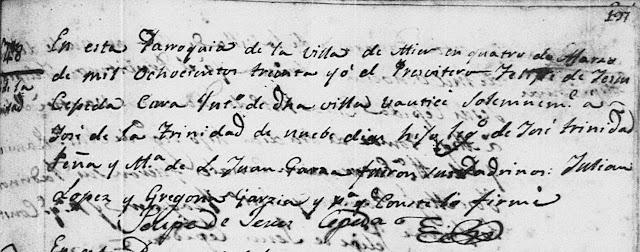 137
En esta Parroquia de la Villa de Mier en quatro de Marzo
de mil ochocientos treinta yó el Presvitero Felipe de Jesus
Cepeda Cura Intº. de dha villa vautice solemnemte. a
José de la Trinidad de nuebe dias hijo lego. de José trinidad
Peña y Ma. de L. Juan Garza fueron sus Padrinos: Julian
Lopez y Gregoria Garzia y pa. qe. Conste lo firmé
Felipe de Jesus Cepeda